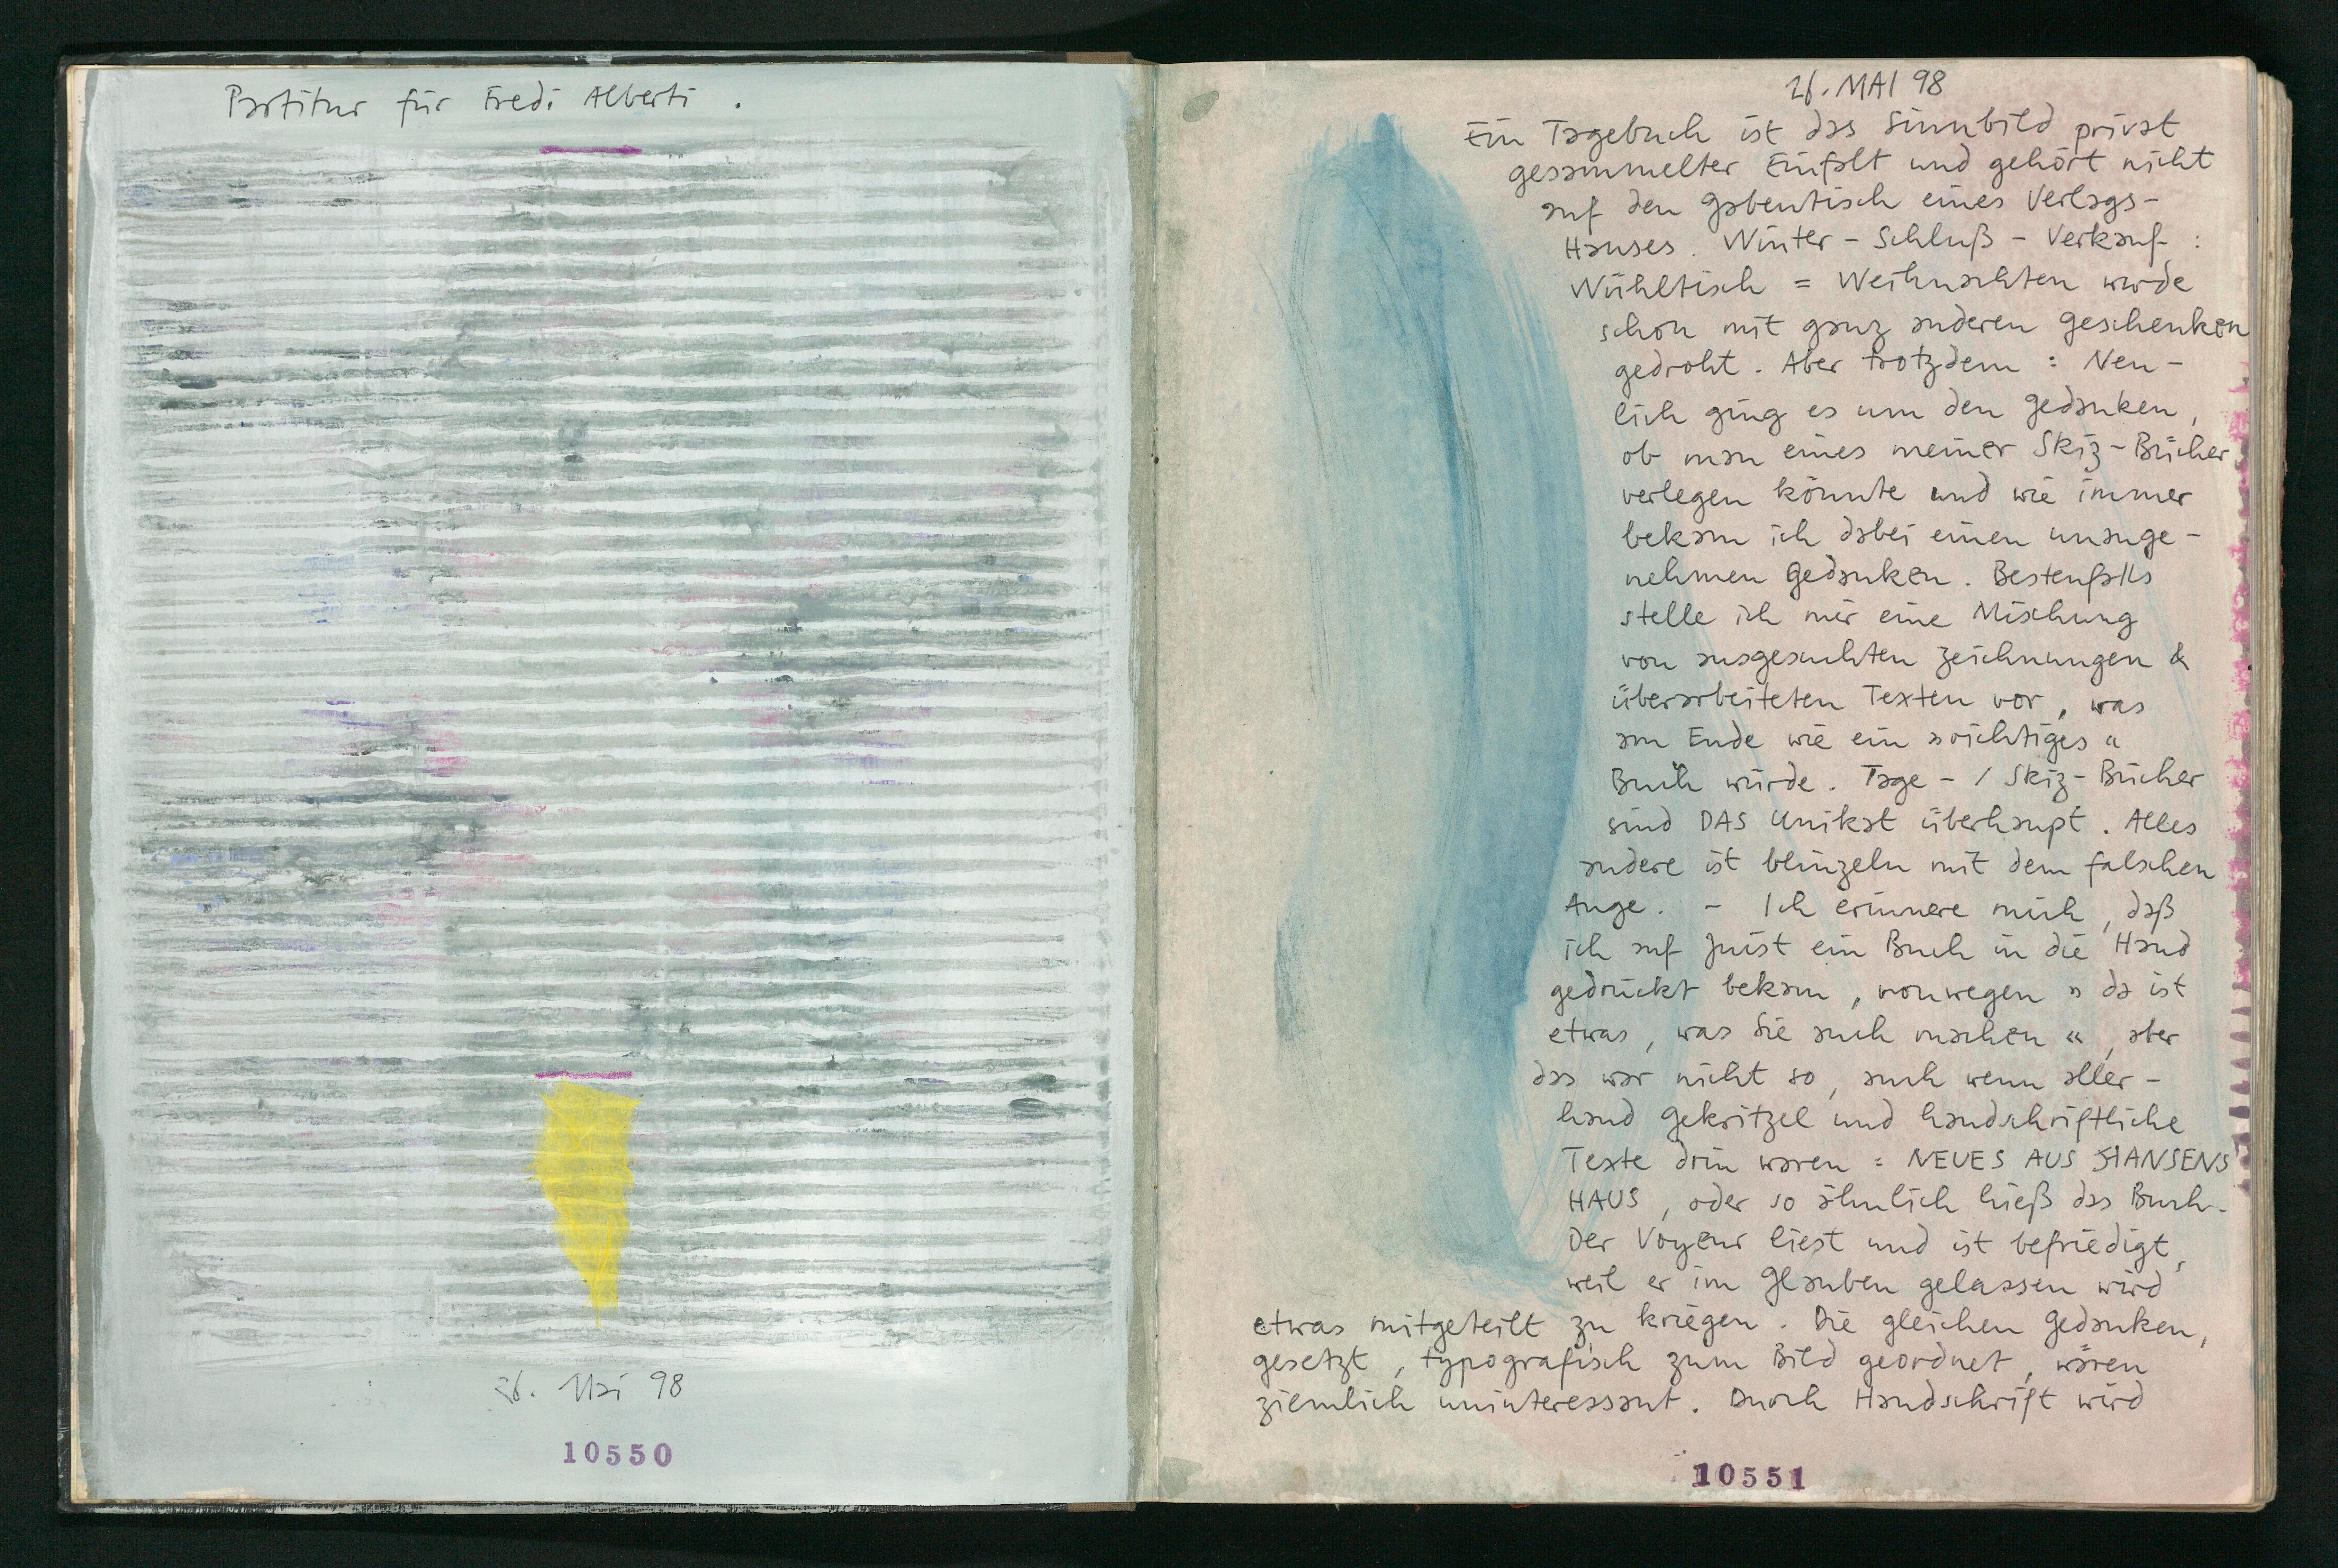 Partitur für Fredi Alberti .
26. Mai 98
10550
26. MAI 98
Ein Tagebuch ist das Sinnbild privat
gesammelter Einfalt und gehört nicht
auf den Gabentisch eines Verlags-
Hauses. Winter-Schluß-Verkauf :
Wühltisch = Weihnachten wurde
schon mit ganz anderen Geschenken
gedroht. Aber trotzdem : Neu-
lich ging es um den Gedanken,
ob man eines meiner Skiz-Bücher
verlegen könnte und wie immer
bekam ich dabei einen unange-
nehmen Gedanken. Bestenfalls
stelle ich mir eine Mischung
von ausgesuchten Zeichnungen &
überarbeiteten Texten vor, was
am Ende wie ein »richtiges«
Buch würde. Tage-/Skiz-Bücher
sind DAS Unikat überhaupt. Alles
andere ist blinzeln mit dem falschen
Auge. - Ich erinnere mich, daß
ich auf Juist ein Buch in die Hand
gedrückt bekam, vonwegen »da ist
etwas, was Sie auch machen«, aber
das war nicht so, auch wenn aller-
hand Gekritzel und handschriftliche
Texte drin waren : NEUES AUS HANSENS
HAUS, oder so ähnlich hieß das Buch.
Der Voyeur liest und ist befriedigt,
weil er im Glauben gelassen wird
etwas mitgeteilt zu kriegen. Die gleichen Gedanken,
gesetzt, typografisch zum Bild geordnet, wären
ziemlich uninteressant. Durch Handschrift wird
10551